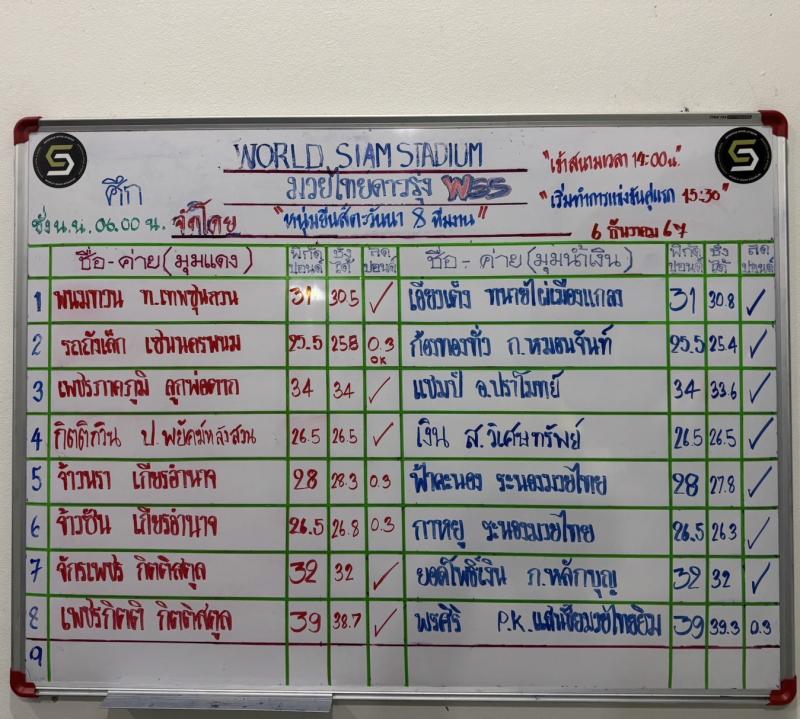 WORLD SIAM STADIUM
"เข้าสนามเวลา 14:00น."
ศึก มวยไทยดาวรุ่ง WSS
"เริ่มทำการแข่งขันคู่แรก 15:30"
ชั่งน.น. 06.00 น. จัดโดย "หนุ่มยีนส์ตะวันนา 8 ทีมงาน"
6 ธันวาคม 67
ชื่อ-ค่าย (มุมแดง) พิกัดปอนด์ ชั่งได้ ลดปอนด์ ชื่อ-ค่าย (มุมน้ำเงิน) พิกัดปอนด์ ชั่งได้ ลดปอนด์
1 พนมทวน ท.เทพชุนลวน 31 30.5 ✓ เอียวเต็ง ทนายไผ่เมืองแกลง 31 30.8 ✓
2 รถถังเล็ก เซ่นนครพนม 25.5 258 0.3 OK ก้องทองทั่ว ก.หมอนจันท์ 25.5 25.4 ✓
3 เพชรภาคภูมิ ลูกพ่อตาก 34 34 ✓ แชมป์ อ.ปราโมทย์ 34 33.6 ✓
4 กิตติกวิน ป.พยัคฆ์หลังสวน 26.5 26.5 ✓ เงิน ส.วิเศษทรัพย์ 26.5 26.5 ✓
5 จ้าวนรา เกียรอำนาจ 28 28.3 0.3 ฟ้าคะนอง ระนองมวยไทย 28 27.8 ✓
6 จ้าวซัน เกียรอำนาจ 26.5 26.8 0.3 กาหยู ระนองมวยไทย 26.5 263 ✓
7 จักรเพชร กิตติสกูล 32 32 ✓ ยอดโพธิ์เงิน ก.หลักบุญ 32 32 ✓
8 เพชรกิตติ กิตติสกูล 39 38.7 ✓ พรศิริ P.K.แสนชัยมวยไทยยิม 39 39.3 0.3
9